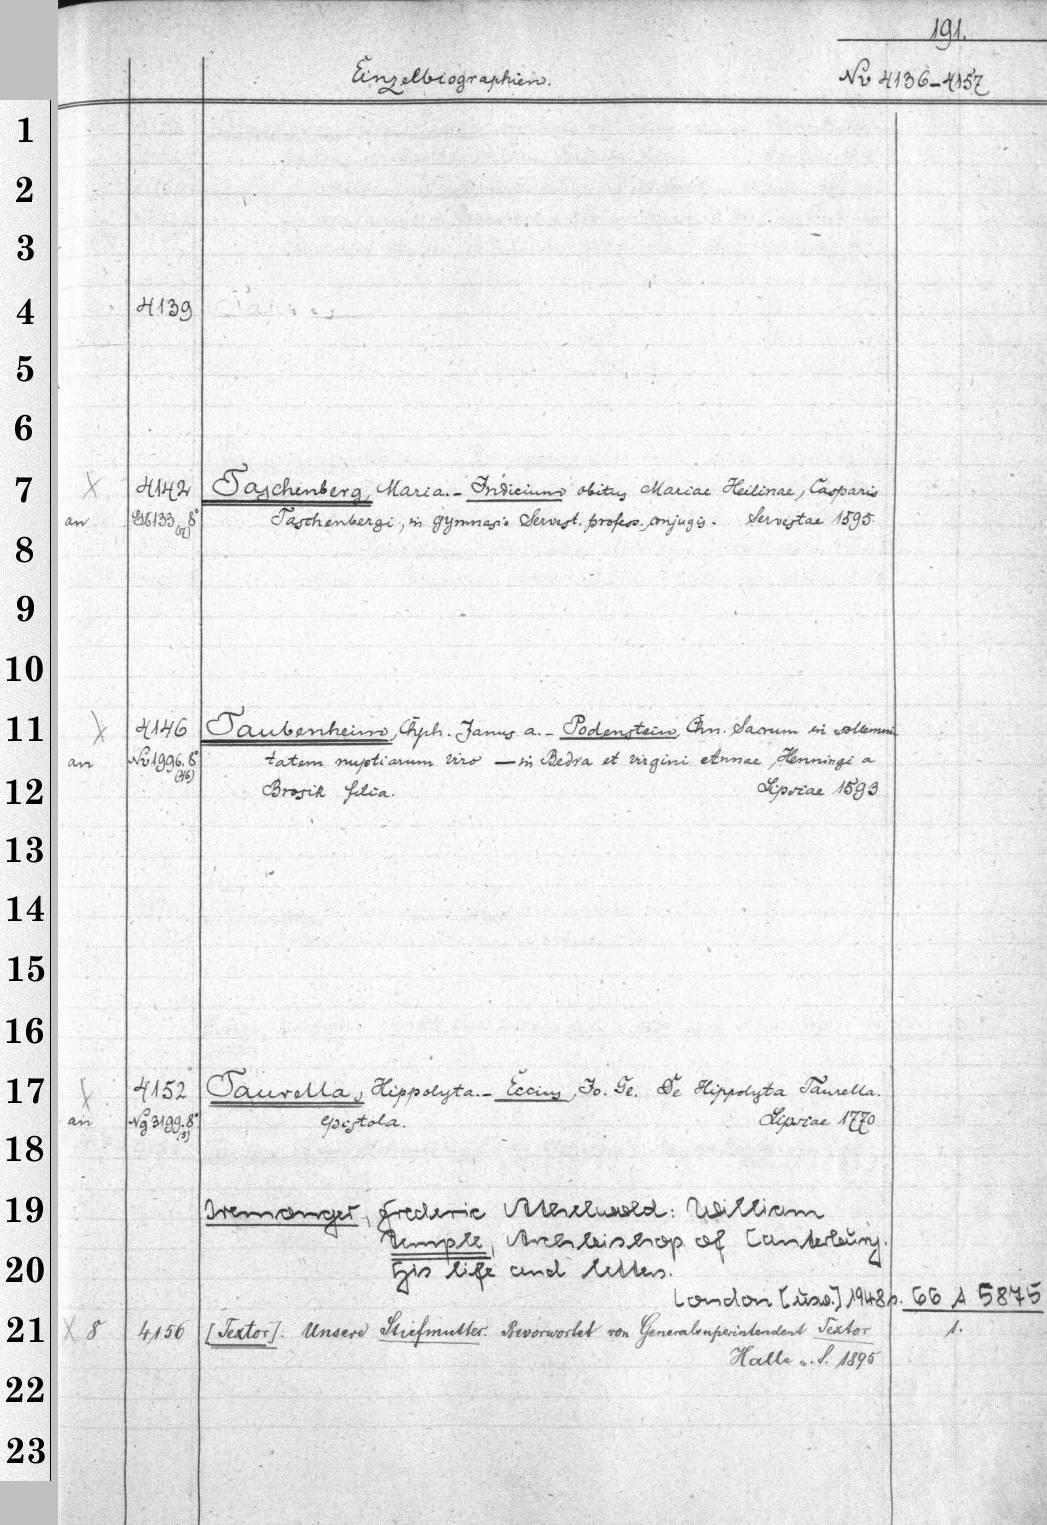 191.
Einzelbiographien. Nv 4136-4157
1
2
3
4 4139
5
6
7 X 4142 Taschenberg, Maria.- Indicium obitus Mariae Heilinae, Casparis
an 8° Taschenbergi, in gymnasio Servest. profess. conjugis. Servestae 1595.
8
9
10
11 X 4146 Taubenheim, Chph. Janus a.- Podenstein, Chn. Sacrum in sollemni
an Nv 1996, 8° (46) tatem nuptiarum viro — in Bedra et virgini Annae, Henningi a
12 Brosik filia. Lipsiae 1593
13
14
15
16
17 X 4152 Taurella, Hippolyta.- Eccius, Jo. Ge. De Hippolyta Taurella.
an Ng 3199. 8° (3) epistola. Lipsiae 1770
18
19 Iremonger, Frederic Athelwold: William
Temple, Archbishop of Canterbury.
20 His life and letters.
London [usw.] 1948 66 A 5875
21 X 8 4156 [Textor]. Unsere Stiefmutter. Bevorwortet von Generalsuperintendent Textor 1.
Halle a. S. 1895
22
23